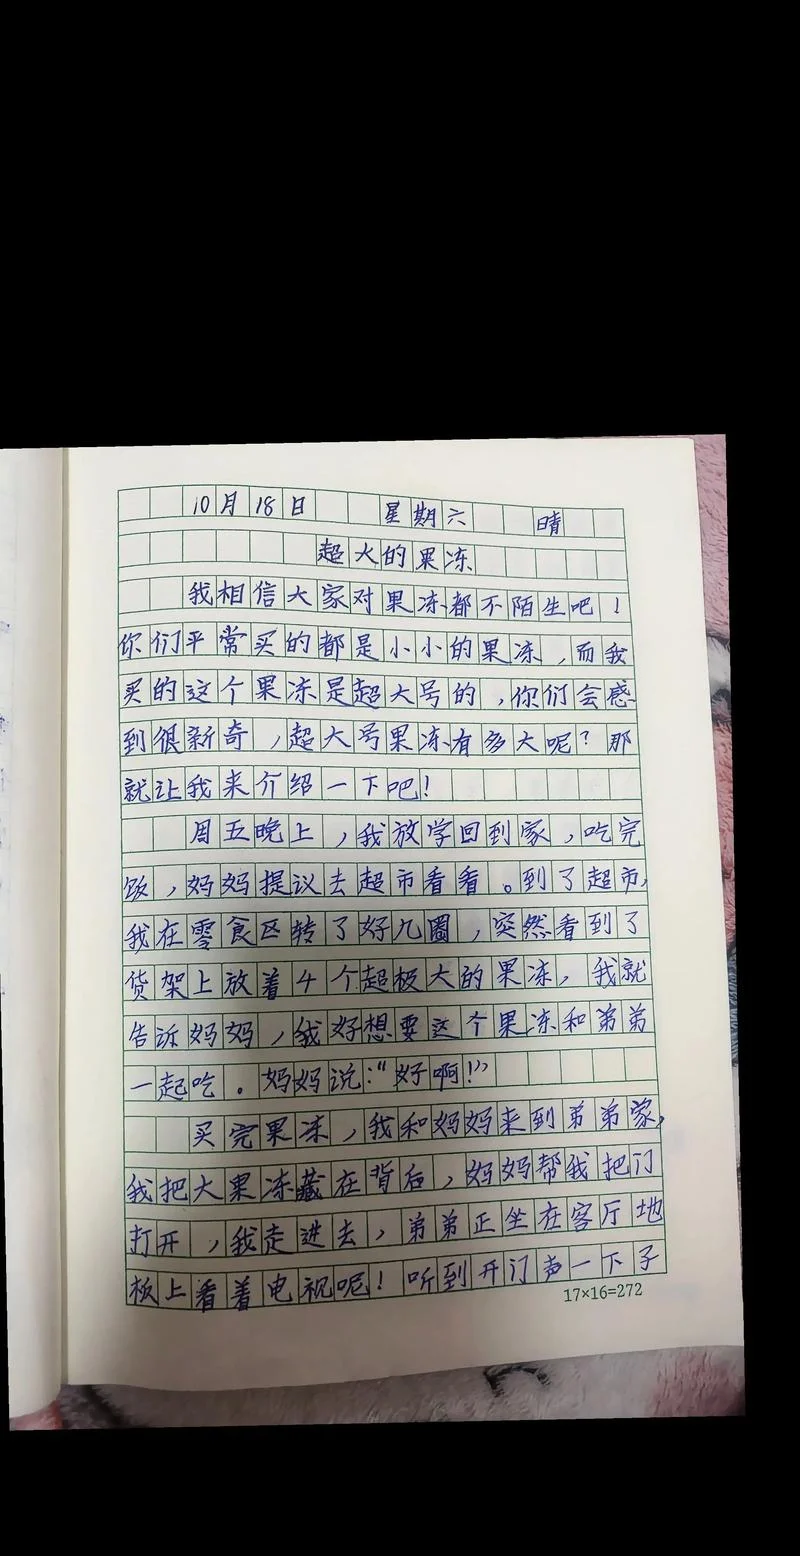 10月18日 星期六 晴
超大的果冻
我相信大家对果冻都不陌生吧！
你们平常买的都是小小的果冻，而我
买的这个果冻是超大号的，你们会感
到很新奇，超大号果冻有多大呢？那
就让我来介绍一下吧！
周五晚上，我放学回到家，吃完
饭，妈妈提议去超市看看。到了超市，
我在零食区转了好几圈，突然看到了
货架上放着4个超极大的果冻，我就
告诉妈妈，我好想要这个果冻和弟弟
一起吃。妈妈说：“好啊！”
买完果冻，我和妈妈来到弟弟家，
我把大果冻藏在背后，妈妈帮我把门
打开，我走进去，弟弟正坐在客厅地
板上看着电视呢！听到开门声一下子
17×16=272